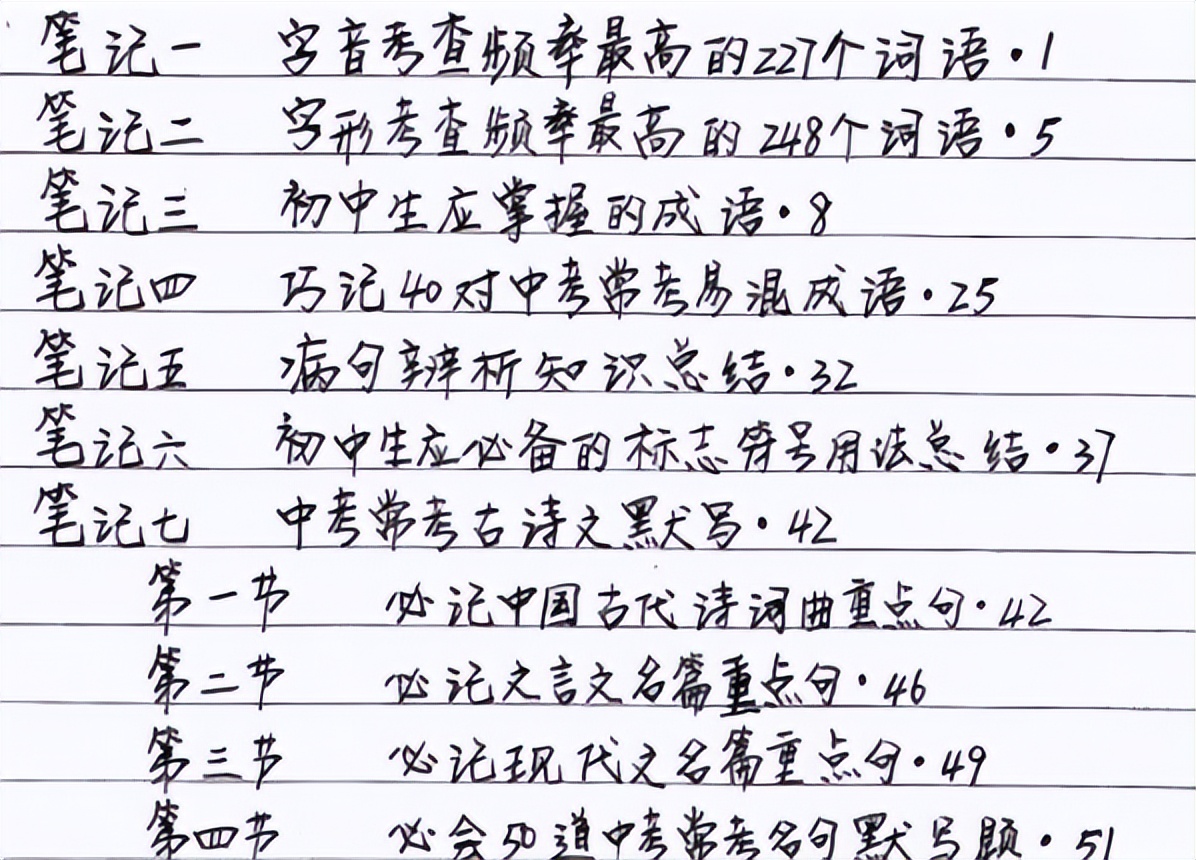 笔记一 字音考查频率最高的227个词语·1
笔记二 字形考查频率最高的248个词语·5
笔记三 初中生应掌握的成语·8
笔记四 巧记40对中考常考易混成语·25
笔记五 病句辨析知识总结·32
笔记六 初中生应必备的标志符号用法总结·37
笔记七 中考常考古诗文默写·42
第一节 必记中国古代诗词曲重点句·42
第二节 必记文言文名篇重点句·46
第三节 必记现代文名篇重点句·49
第四节 必会50道中考常考名句默写题·51